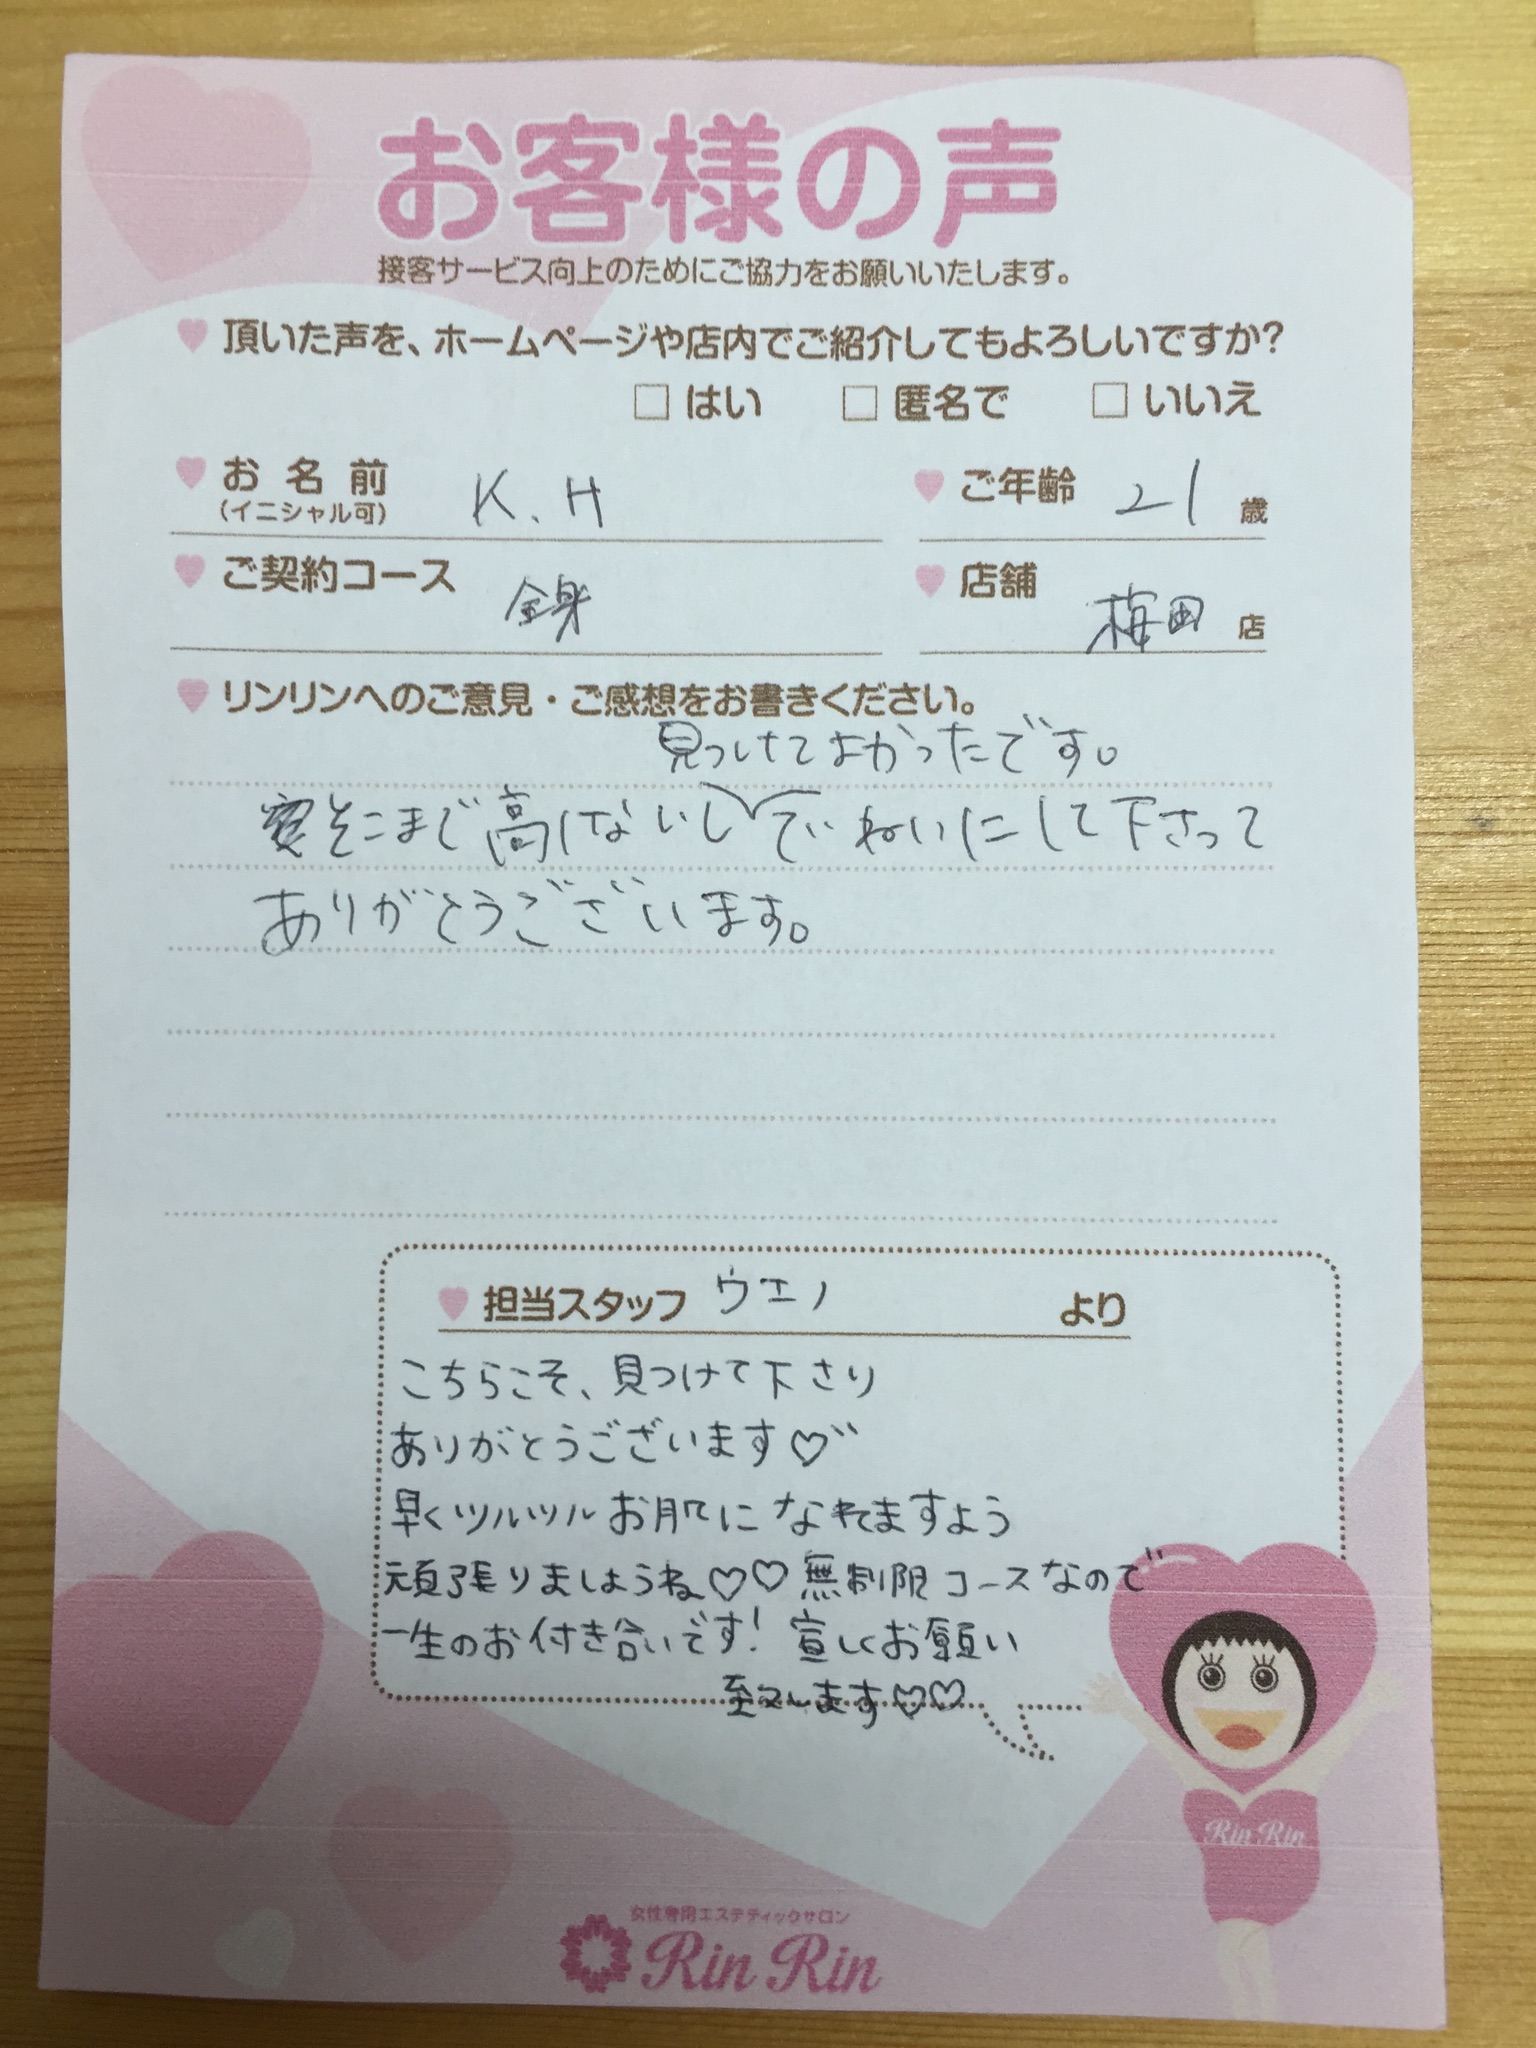 お客様の声
接客サービス向上のためにご協力をお願いいたします。
頂いた声を、ホームページや店内でご紹介してもよろしいですか?
はい 匿名で いいえ
お名前 K.H ご年齢 21 歳
(イニシャル可)
ご契約コース 全身 店舗 梅田 店
リンリンへのご意見・ご感想をお書きください。
見つけてよかったです。
そこまで高くないし ていねいにして下さって
ありがとうございます。
担当スタッフ ウエノ より
こちらこそ、見つけて下さり
ありがとうございます♡
早くツルツルお肌になれますよう
頑張りましょうね♡♡ 無制限コースなので
一生のお付き合いです! 宜しくお願い
致します♡♡
Rin Rin
女性専用エステティックサロン
Rin Rin